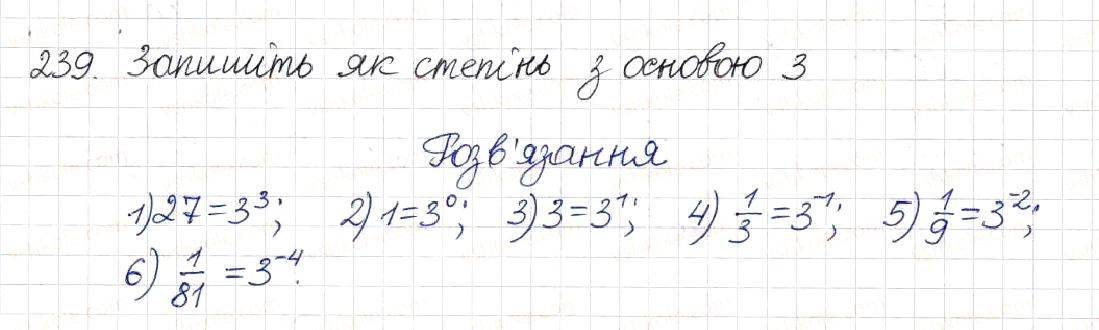 239. Запишіть як степінь з основою 3
Розв'язання
1) 27 = 3³; 2) 1 = 3⁰; 3) 3 = 3¹; 4) 1/3 = 3⁻¹; 5) 1/9 = 3⁻²;
6) 1/81 = 3⁻⁴.